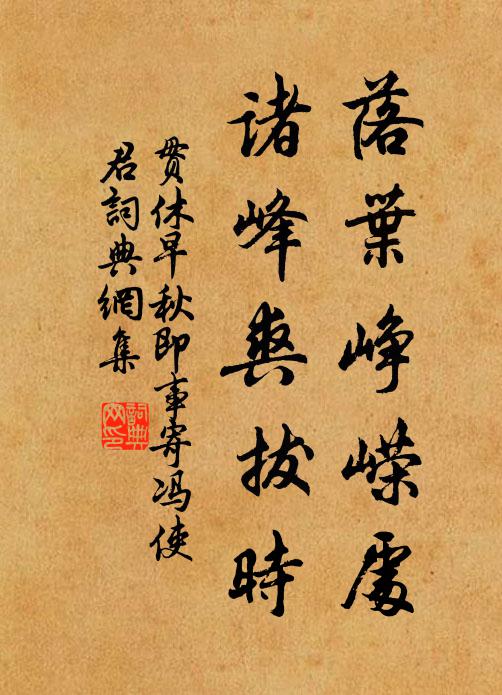 落葉崢嶸處
諸峰爽拔時
貫休早秋即事寄冯使
君詞典網集
詞典網印